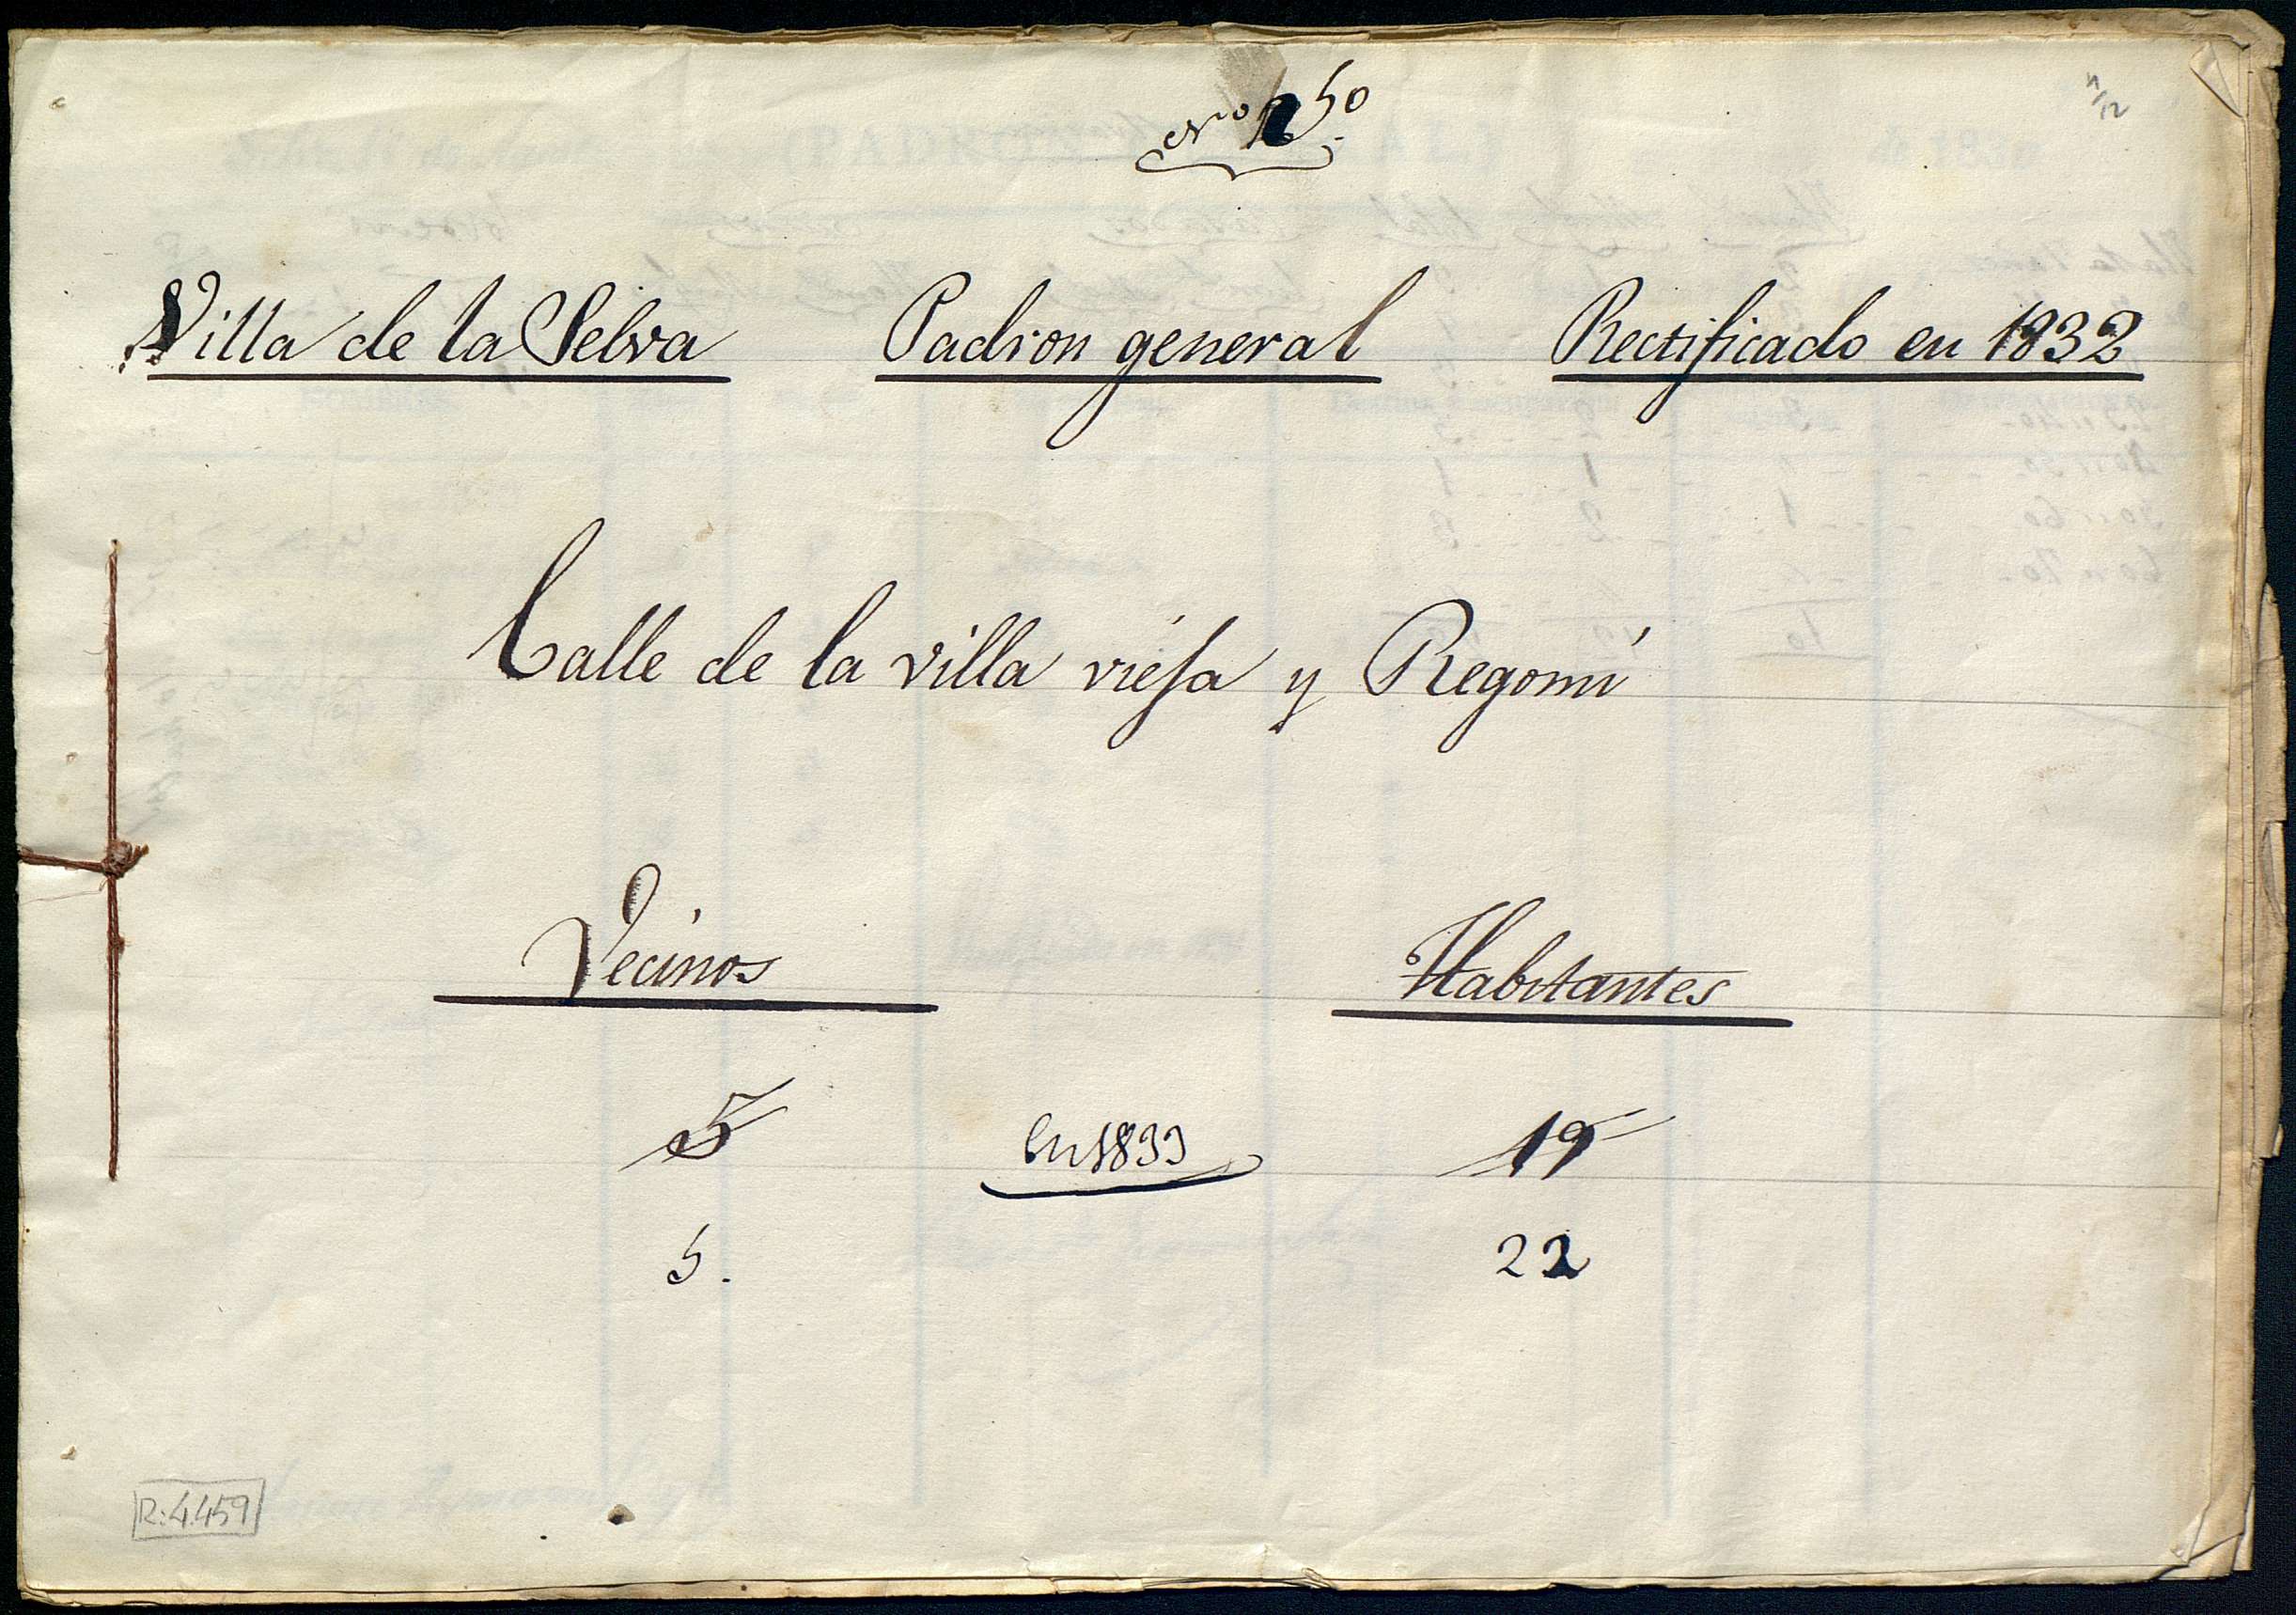 Villa de la Selva Padron general Rectificado en 1832
Calle de la villa vieja y Regomí
Vecinos Habitantes
5 En 1833 19
5. 22
R:4.459